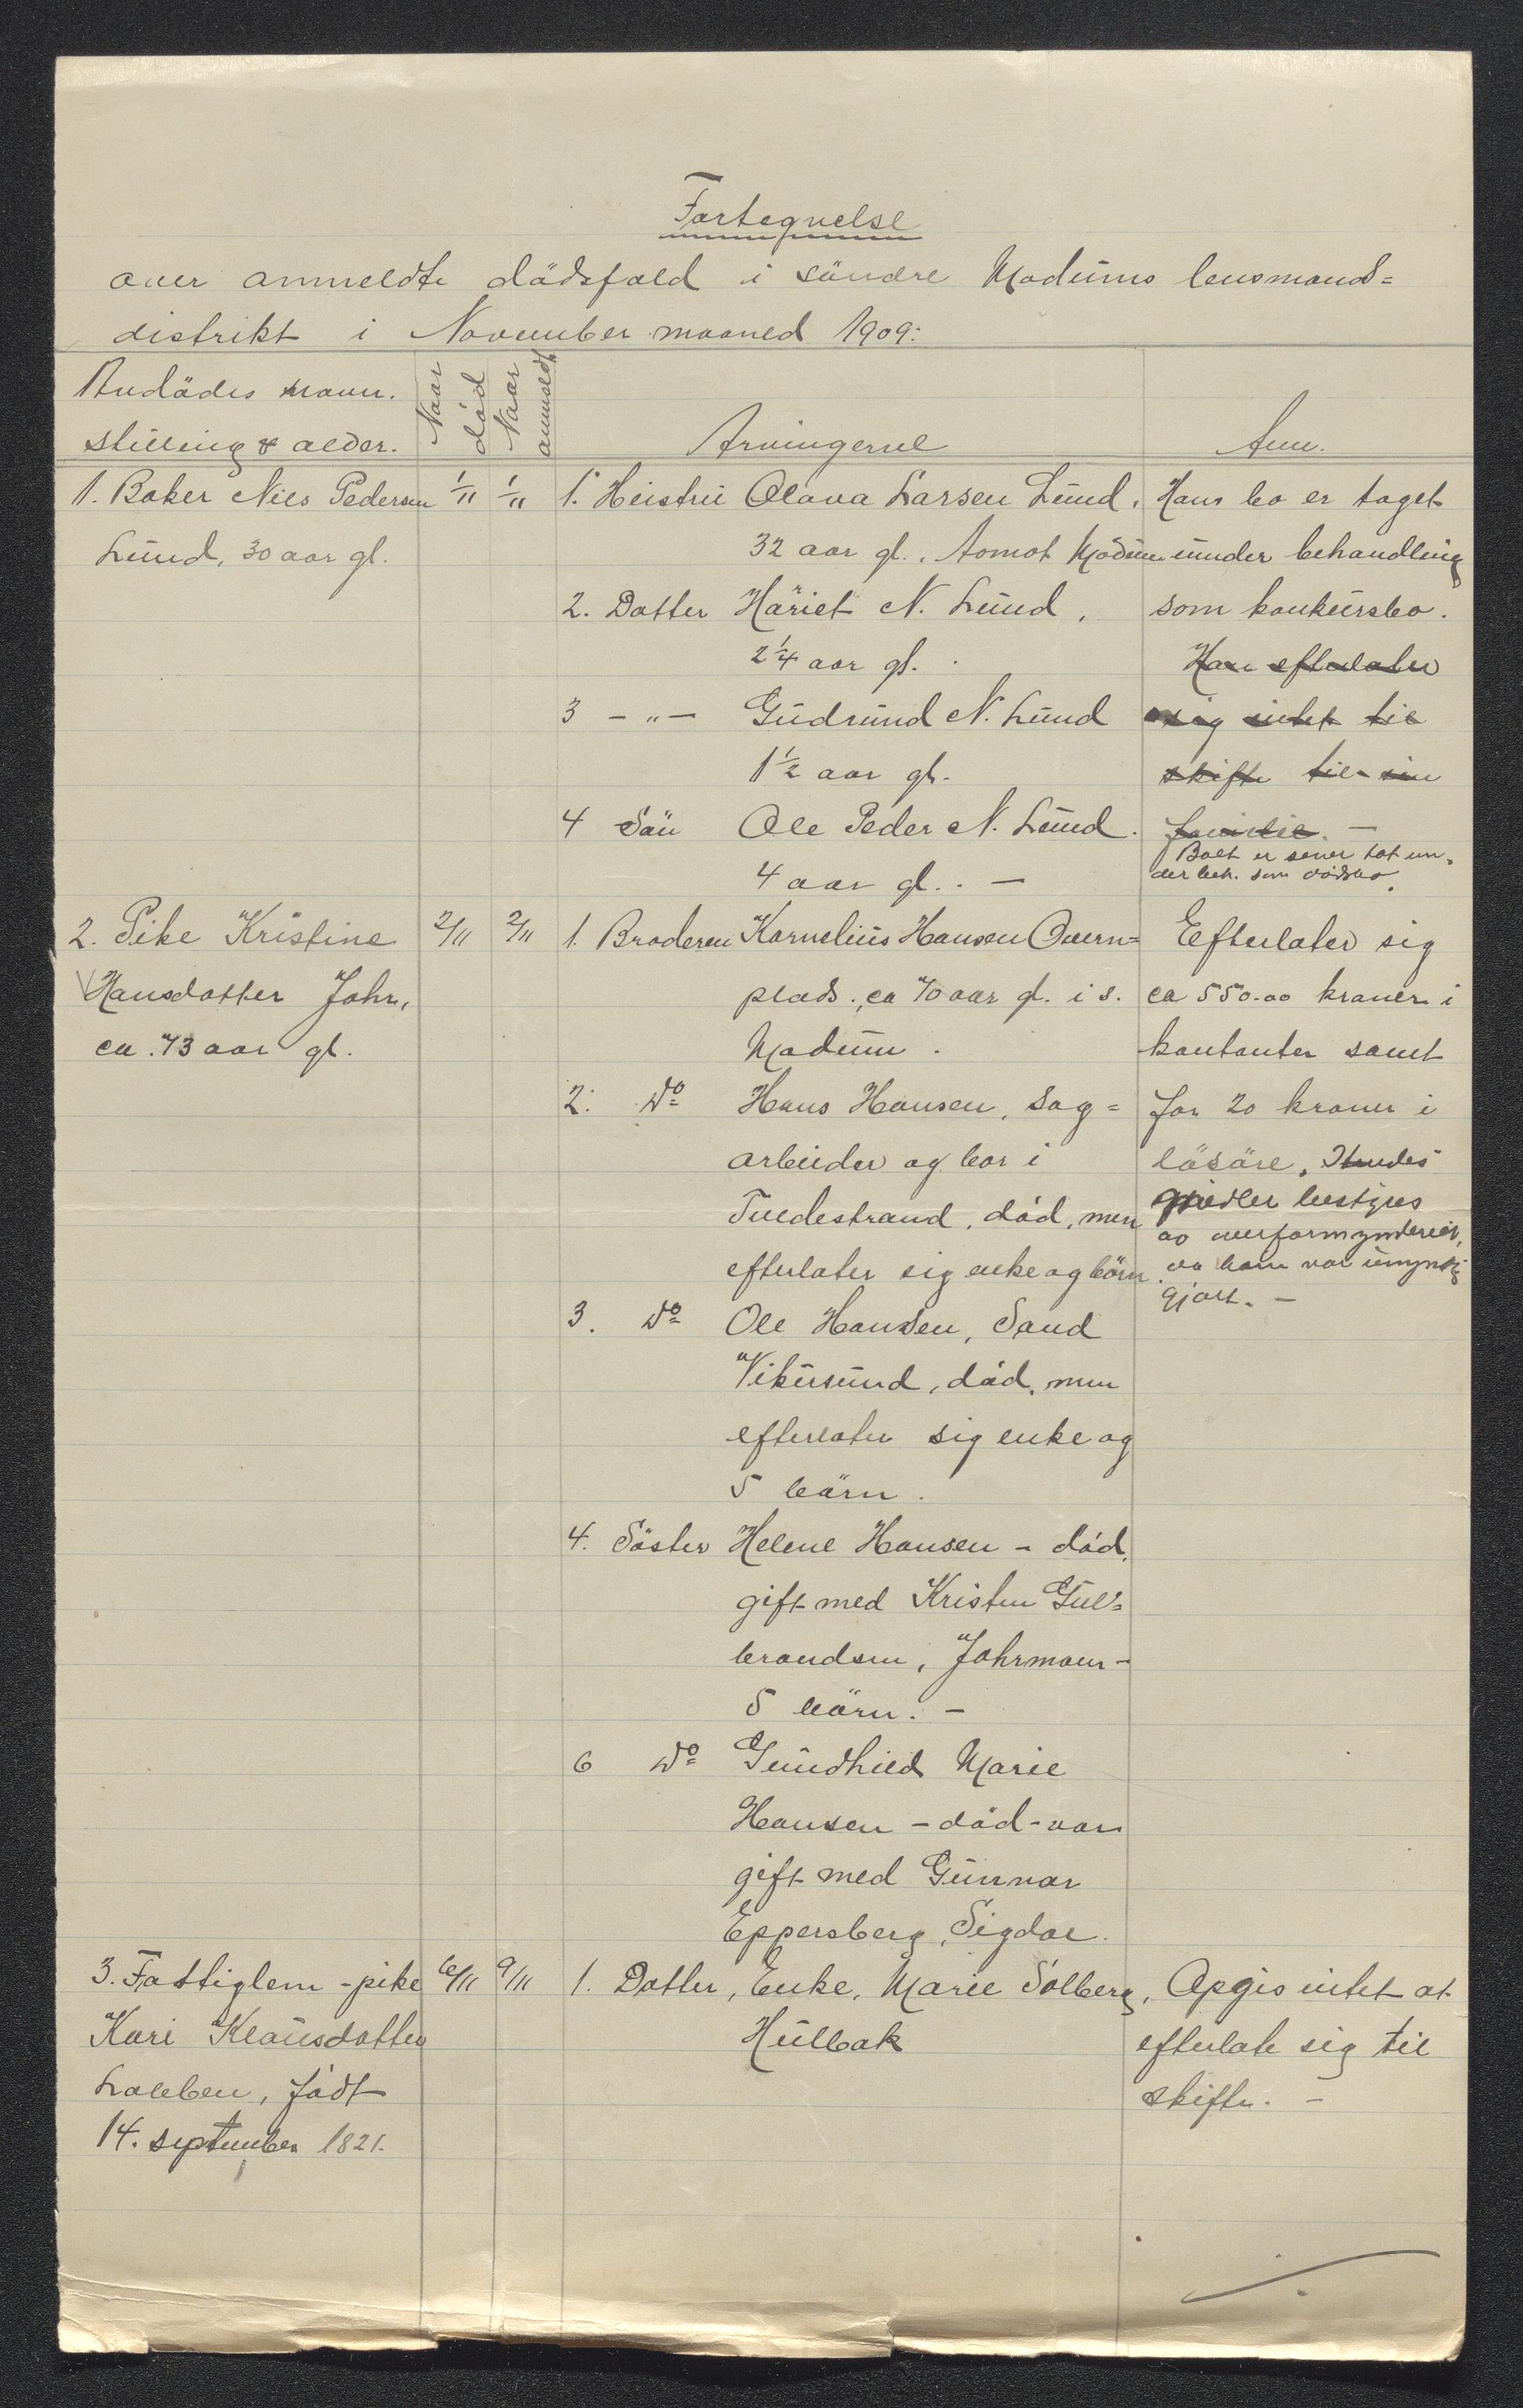 Fortegnelse
over anmeldte dödsfald i söndre Modums lensmands=
distrikt i November maaned 1909:
Avdödes navn.
stilling & alder.
Naar död
Naar anmeldt
Arvingerne
Anm.
1. Baker Nils Pedersen
Lund, 30 aar gl.
1/11
1/11
1. Heistru Olava Larsen Lund.
32 aar gl., Aomot Modum
2. Datter Häriet N. Lund,
2 1/4 aar gl.
3 -"- Gudrund N. Lund
1 1/2 aar gl.
4 Sön Ole Peder N. Lund.
4 aar gl. . -
Hans bo er taget
under behandling
som konkursbo.
Han efterlater
sig intet til
skifte til sin
familie. -
Boet er senere tat un-
der beh. som dödsbo.
2. Pike Kristine
Hansdatter Johr,
ca. 73 aar gl.
2/11
2/11
1. Broderen Kornelius Hansen Overn=
plads., ca 70 aar gl. i s.
Modum.
2. Do Hans Hansen, sag=
arbeider og bor i
Tvedestrand, död, men
efterlater sig enke og börn
3. Do Ole Hansen, Sand
Vikersund, död, men
efterlater sig enke og
5 börn.
4. Söster Helene Hansen - död,
gift med Kristen Gul=
brandsen, Johrmoen -
5 börn. -
6 Do Gundhild Marie
Hansen - död - var
gift med Gunnar
Eppersberg, Sigdal.
Eefterlater sig
ca 550.00 kroner i
kontanter samt
for 20 kroner i
lösöre. Hendes
midler bestyres
av overformynderiet,
da hun var umyndig
gjort. -
3. Fattiglem - pike
Kari Klausdatter
Lobben, födt
14. september 1821.
6/11
9/11
1. Datter, Enke, Marie Solberg,
Hulbak
Opgis intet at
efterlate sig til
skifte. -